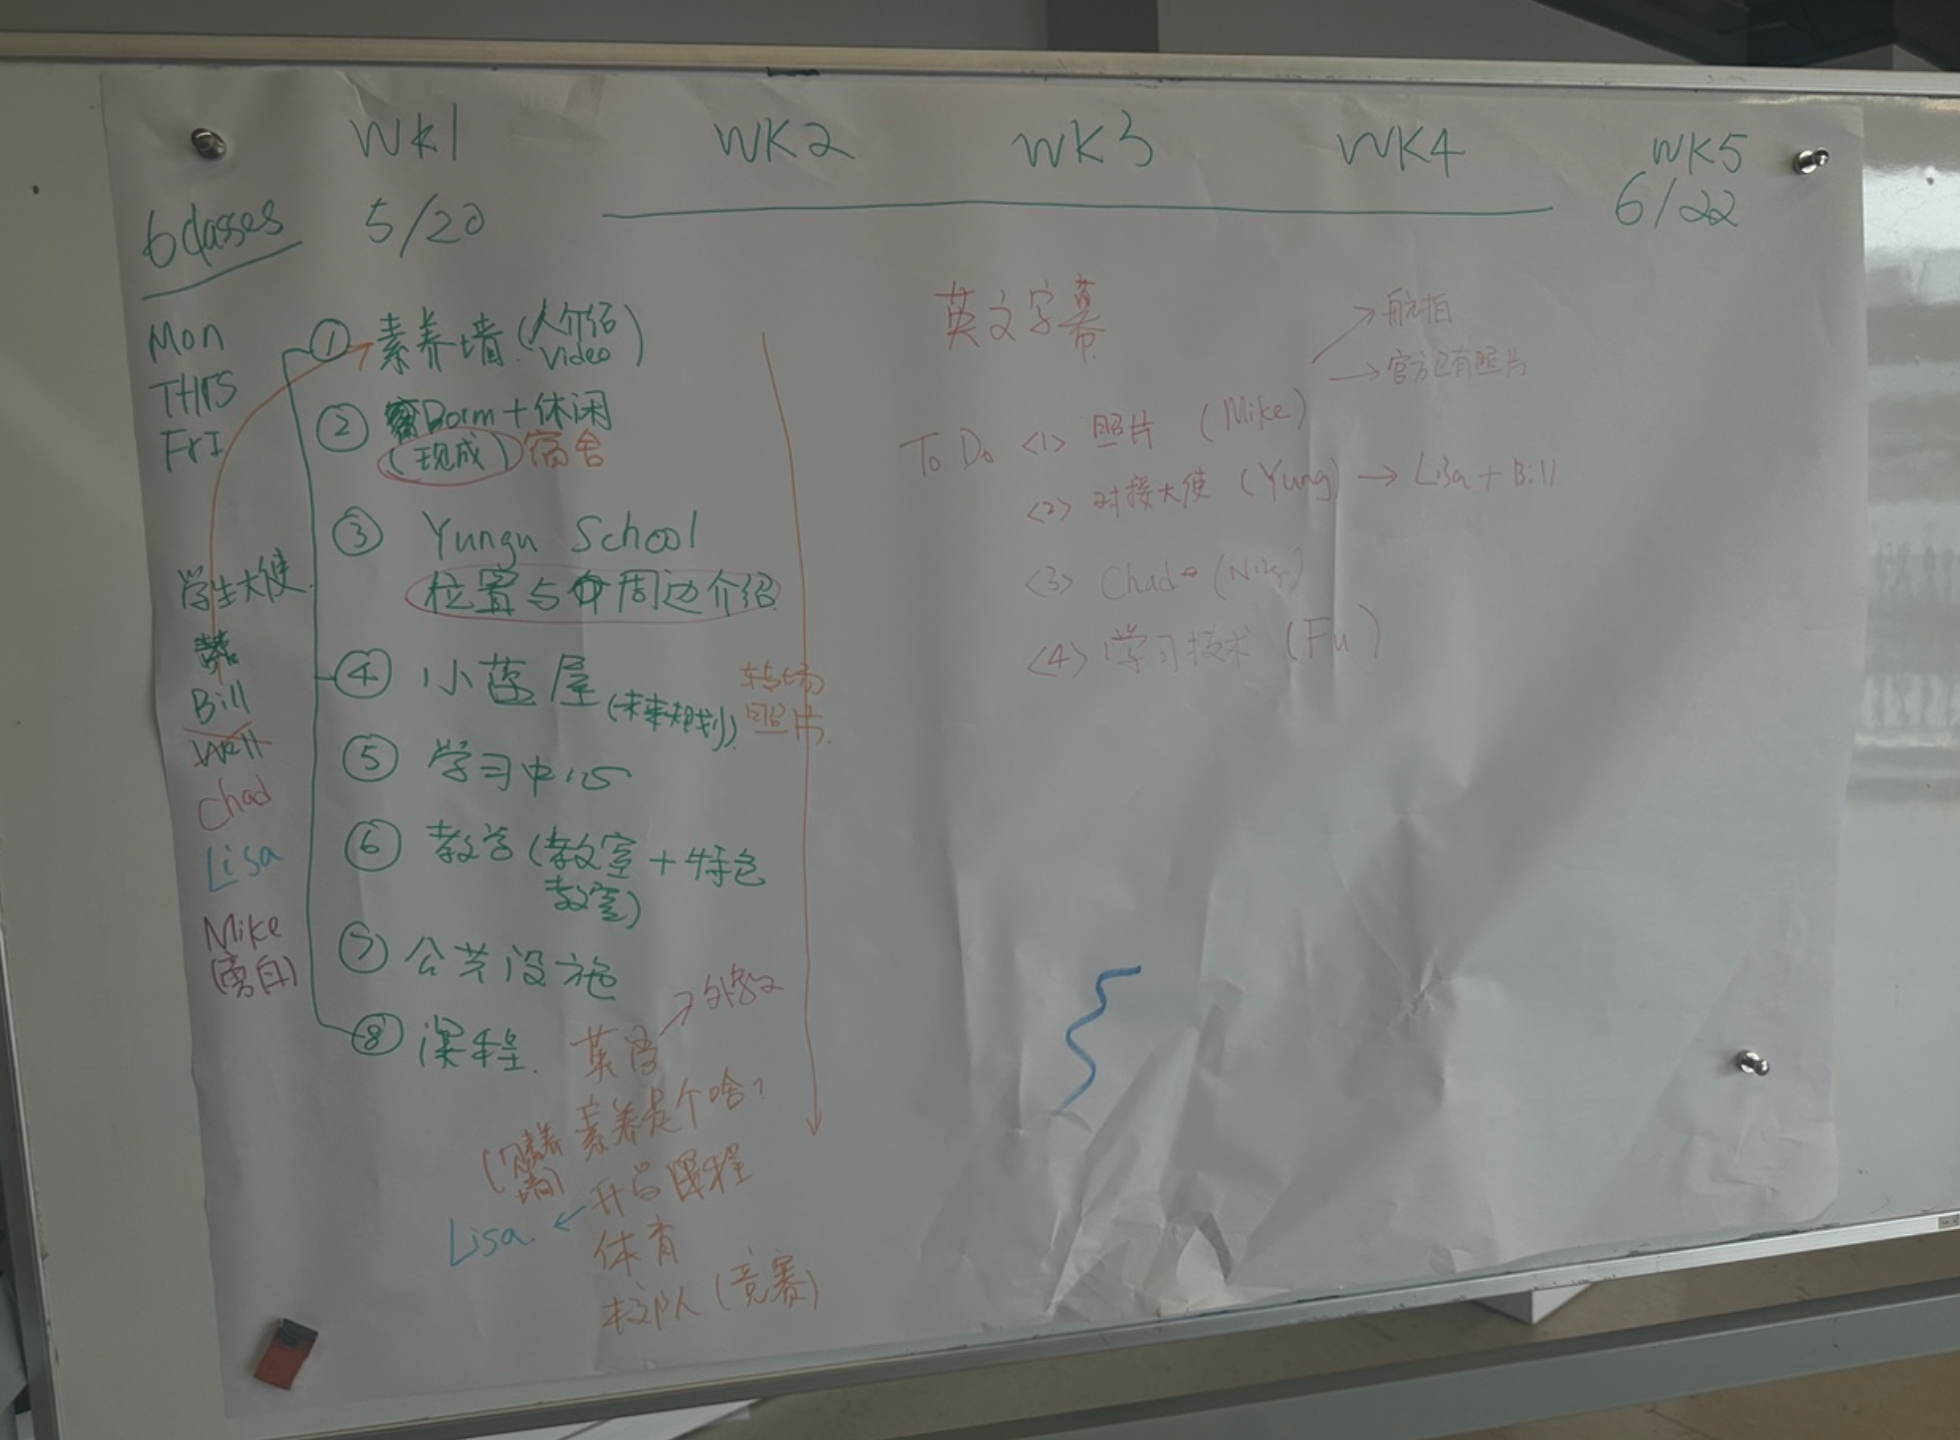 WK1 WK2 WK3 WK4 WK5
6 classes 5/20 6/22
Mon
THRS
FRI
学生大使
Bill
Will
Chad
Lisa
Mike
(旁白)
① 素养墙 (人介绍
video)
② Dorm + 休闲
(现成) 宿舍
③ Yungu School
位置与周边介绍
④ 小莲屋 (未来规划)
转场
照片
⑤ 学习中心
⑥ 教学 (教室 + 特色
教室)
⑦ 公共设施
⑧ 课程
英语 → 外教
素养是个啥?
(素养
墙)
开学课程
Lisa ←
体育
校队 (竞赛)
英文字幕
→ 航拍
→ 官方已有照片
To Do <1> 照片 (Mike)
<2> 对接大使 (Yung) → Lisa + Bill
<3> Chad
<4> 学习技术 (Fu)